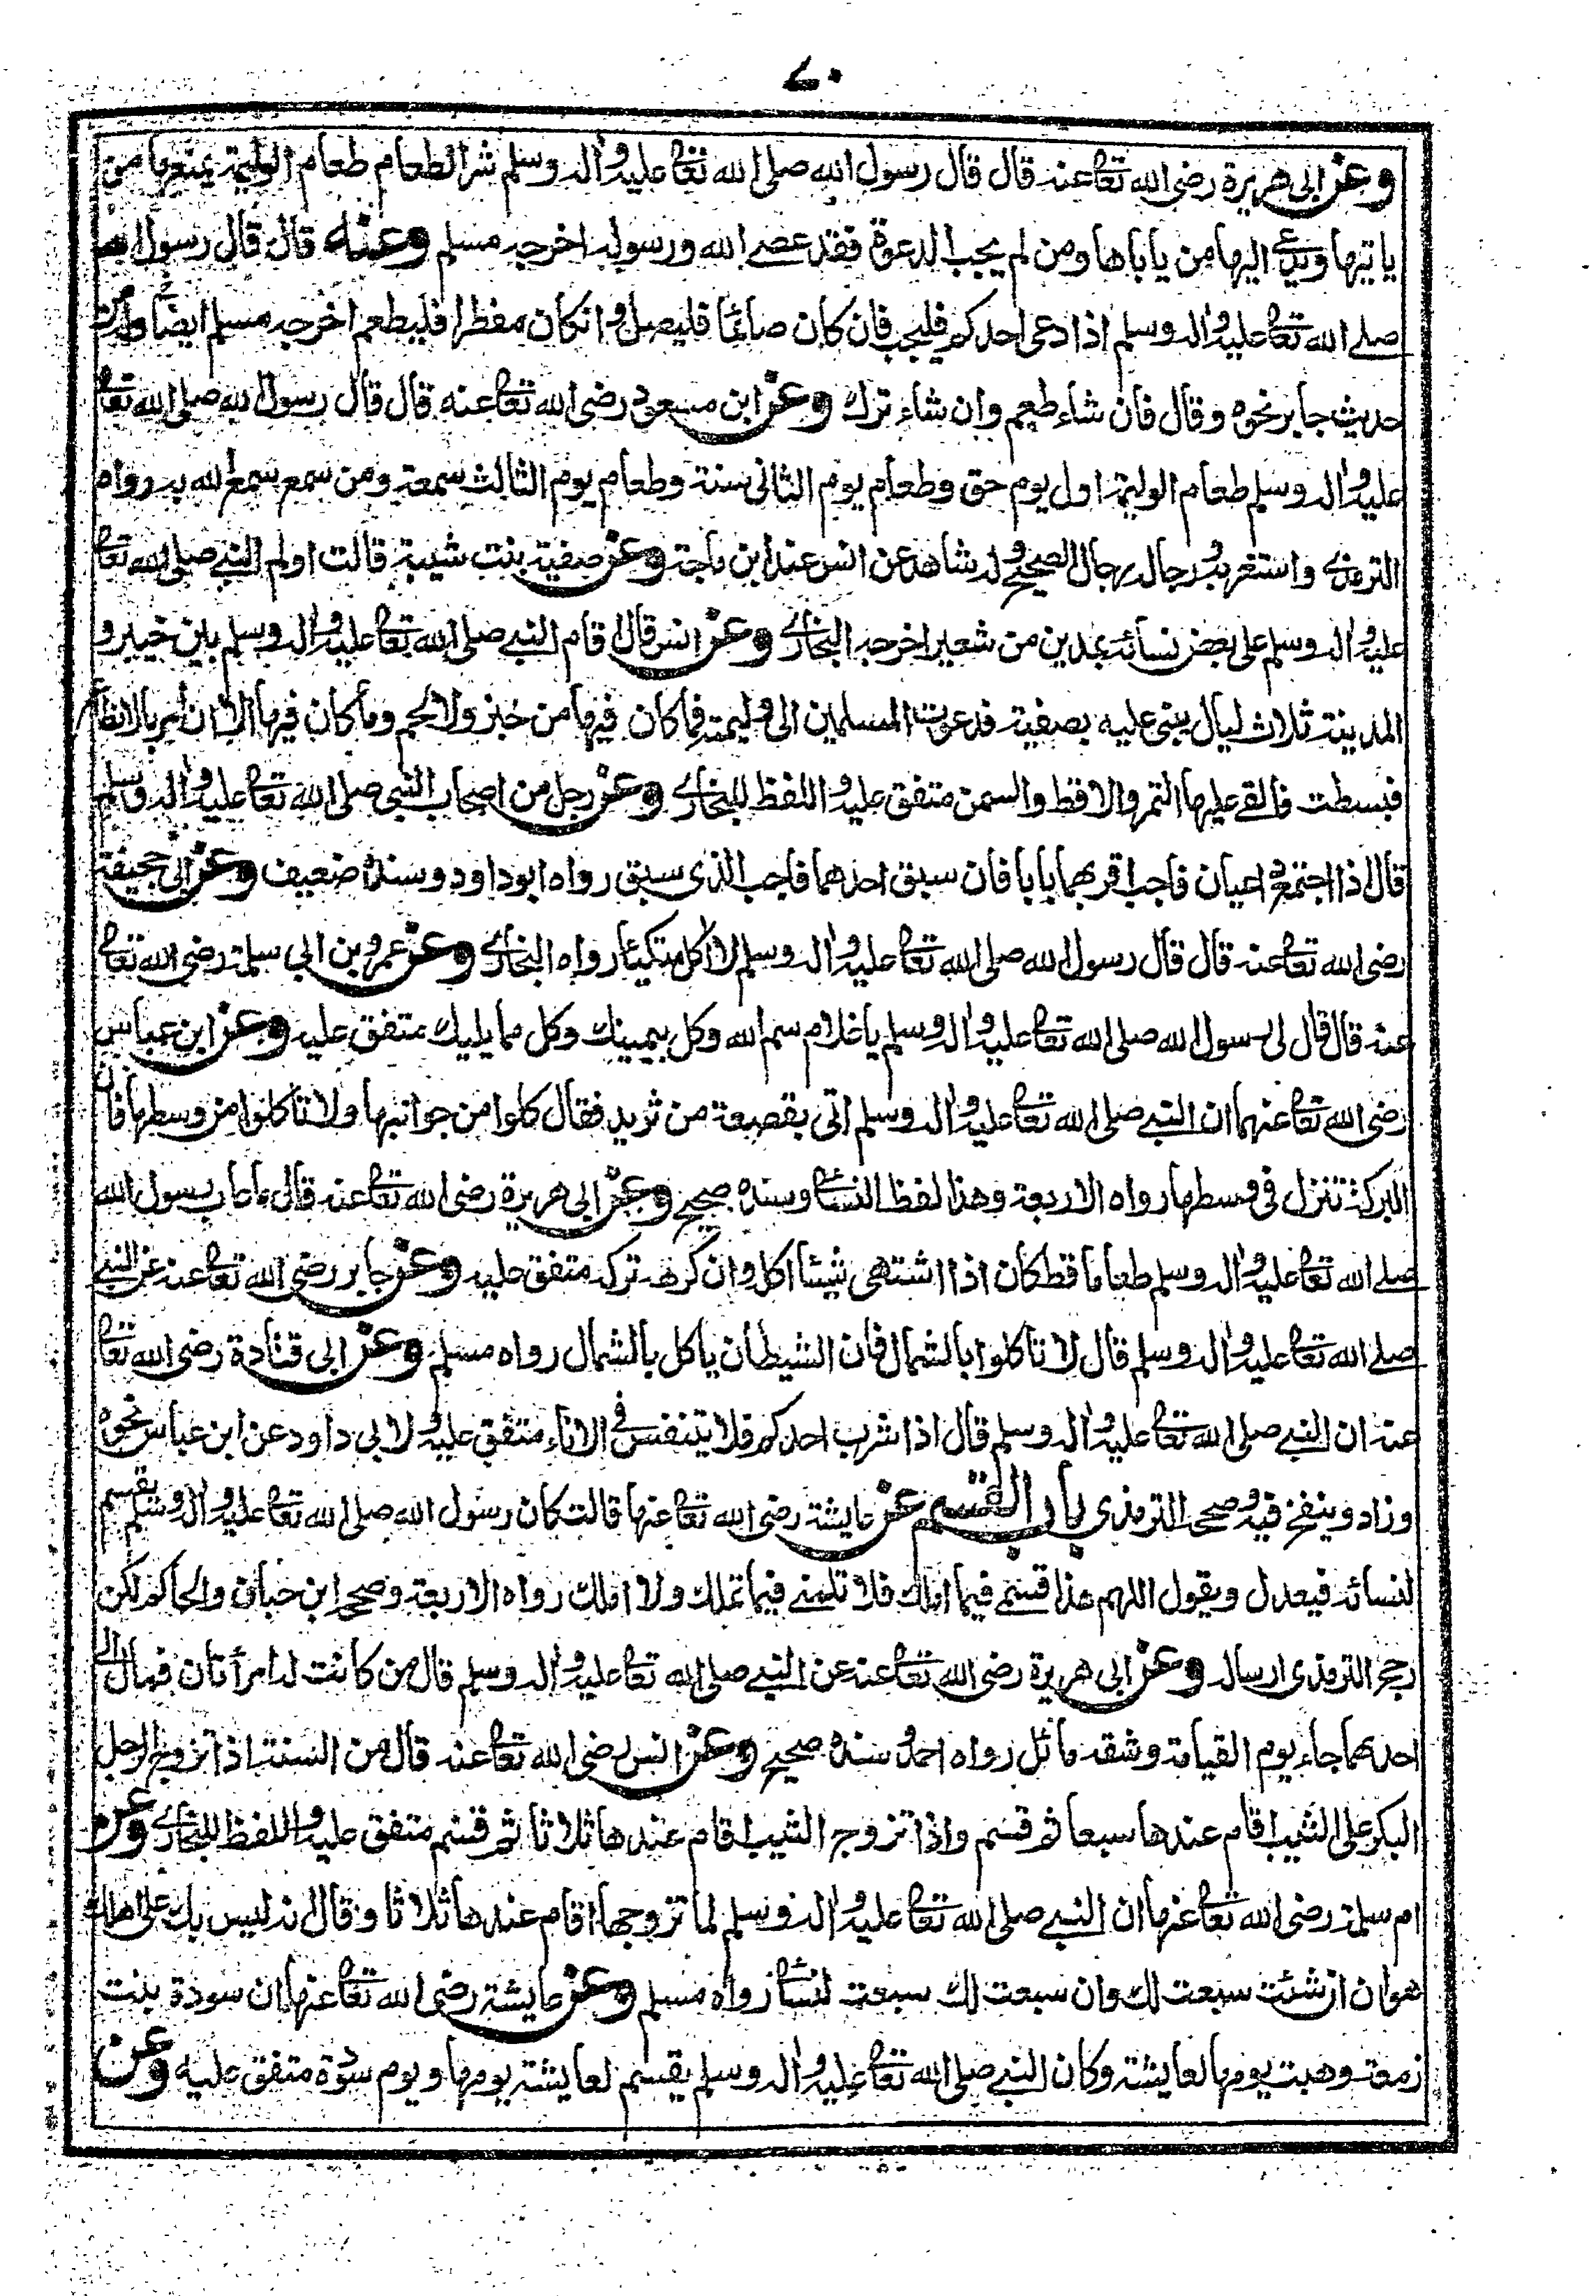 ٧٠
وعن ابى هريرة رضى الله تعالى عنه قال قال رسول الله صلى الله تعالى عليه واله وسلم شر الطعام طعام الوليمة يمنعها من
ياتيها ويدعى اليها من ياباها ومن لم يجب الدعوة فقد عصى الله ورسوله اخرجه مسلم وعنه قال قال رسول الله
صلى الله تعالى عليه واله وسلم اذا دعى احدكم فليجب فان كان صائما فليصل وانكان مفطرا فليطعم اخرجه مسلم ايضا وله من
حديث جابر نحوه وقال فان شاء طعم وان شاء ترك وعن ابن مسعود رضى الله تعالى عنه قال قال رسول الله صلى الله تعالى
عليه واله وسلم طعام الوليمة اول يوم حق وطعام يوم الثانى سنة وطعام يوم الثالث سمعة ومن سمع سمع الله به رواه
الترمذى واستغربه ورجاله رجال الصحيح وله شاهد عن انس عند ابن ماجة وعن صفية بنت شيبة قالت اولم النبى صلى الله تعالى
عليه واله وسلم على بعض نسائه بمدين من شعير اخرجه البخارى وعن انس قال اقام النبى صلى الله تعالى عليه واله وسلم بين خيبر و
المدينة ثلاث ليال يبنى عليه بصفية فدعوت المسلمين الى وليمته فما كان فيها من خبز ولا لحم وما كان فيها الا ان امر بالانطاع
فبسطت فالقى عليها التمر والاقط والسمن متفق عليه واللفظ للبخارى وعن رجل من اصحاب النبى صلى الله تعالى عليه واله وسلم
قال اذا اجتمع داعيان فاجب اقربهما بابا فان سبق احدهما فاجب الذى سبق رواه ابو داود وسنده ضعيف وعن ابى جحيفة
رضى الله تعالى عنه قال قال رسول الله صلى الله تعالى عليه واله وسلم لا اكل متكئا رواه البخارى وعن عمرو بن ابى سلمة رضى الله تعالى
عنه قال قال لى رسول الله صلى الله تعالى عليه واله وسلم يا غلام سم الله وكل بيمينك وكل مما يليك متفق عليه وعن ابن عباس
رضى الله تعالى عنهما ان النبى صلى الله تعالى عليه واله وسلم اتى بقصعة من ثريد فقال كلوا من جوانبها ولا تاكلوا من وسطها فان
البركة تنزل فى وسطها رواه الاربعة وهذا لفظ النسائى وسنده صحيح وعن ابى هريرة رضى الله تعالى عنه قال ما عاب رسول الله
صلى الله تعالى عليه واله وسلم طعاما قط كان اذا اشتهى شيئا اكل وان كرهه تركه متفق عليه وعن جابر رضى الله تعالى عنه عن النبى
صلى الله تعالى عليه واله وسلم قال لا تاكلوا بالشمال فان الشيطان ياكل بالشمال رواه مسلم وعن ابى قتادة رضى الله تعالى
عنه ان النبى صلى الله تعالى عليه واله وسلم قال اذا شرب احدكم فلا يتنفس فى الاناء متفق عليه ولابى داود عن ابن عباس نحوه
وزاد وينفخ فيه وصححه الترمذى باب القسم عن عايشة رضى الله تعالى عنها قالت كان رسول الله صلى الله تعالى عليه واله وسلم يقسم
لنسائه فيعدل ويقول اللهم هذا قسمى فيما املك فلا تلمنى فيما تملك ولا املك رواه الاربعة وصححه ابن حبان والحاكم لكن
رجح الترمذى ارساله وعن ابى هريرة رضى الله تعالى عنه عن النبى صلى الله تعالى عليه واله وسلم قال من كانت له امرأتان فمال الى
احدهما جاء يوم القيامة وشقه مائل رواه احمد وسنده صحيح وعن انس رضى الله تعالى عنه قال من السنة اذا تزوج الرجل
البكر على الثيب اقام عندها سبعا ثم قسم واذا تزوج الثيب اقام عندها ثلاثا ثم قسم متفق عليه واللفظ للبخارى وعن
ام سلمة رضى الله تعالى عنها ان النبى صلى الله تعالى عليه واله وسلم لما تزوجها اقام عندها ثلاثا وقال انه ليس بك على اهلك
هوان ان شئت سبعت لك وان سبعت لك سبعت لنسائى رواه مسلم وعن عايشة رضى الله تعالى عنها ان سودة بنت
زمعة وهبت يومها لعايشة وكان النبى صلى الله تعالى عليه واله وسلم يقسم لعايشة يومها ويوم سودة متفق عليه وعن